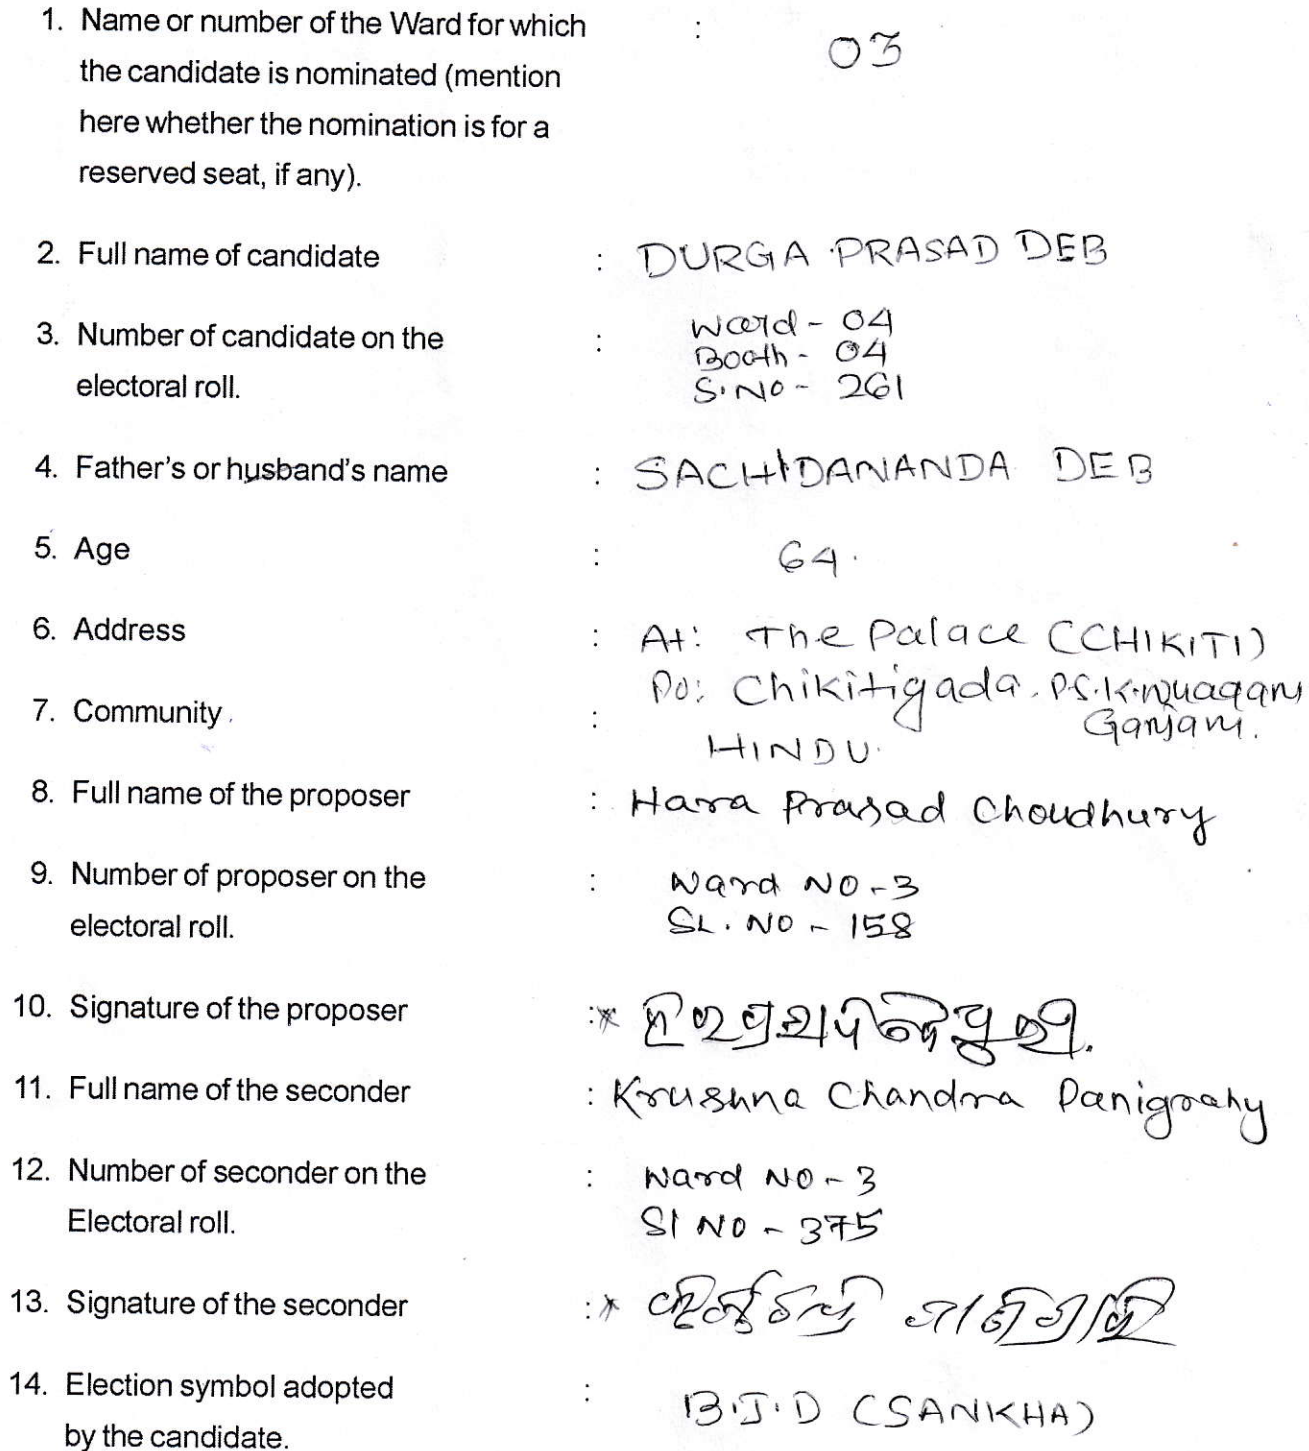 1. Name or number of the Ward for which : 03
the candidate is nominated (mention
here whether the nomination is for a
reserved seat, if any).
2. Full name of candidate : DURGA PRASAD DEB
3. Number of candidate on the : Ward - 04
Booth - 04
electoral roll. S.NO - 261
4. Father's or husband's name : SACHIDANANDA DEB
5. Age : 64.
6. Address : At: The Palace (CHIKITI)
Po: Chikitigada. P.S. K.Nuagam
Ganjam.
7. Community. : HINDU.
8. Full name of the proposer : Hara Prasad Choudhury
9. Number of proposer on the : Ward NO - 3
electoral roll. SL. NO - 158
10. Signature of the proposer :*
11. Full name of the seconder : Krushna Chandra Panigrahy
12. Number of seconder on the : Ward NO - 3
Electoral roll. Sl NO - 375
13. Signature of the seconder :*
14. Election symbol adopted : B.J.D (SANKHA)
by the candidate.